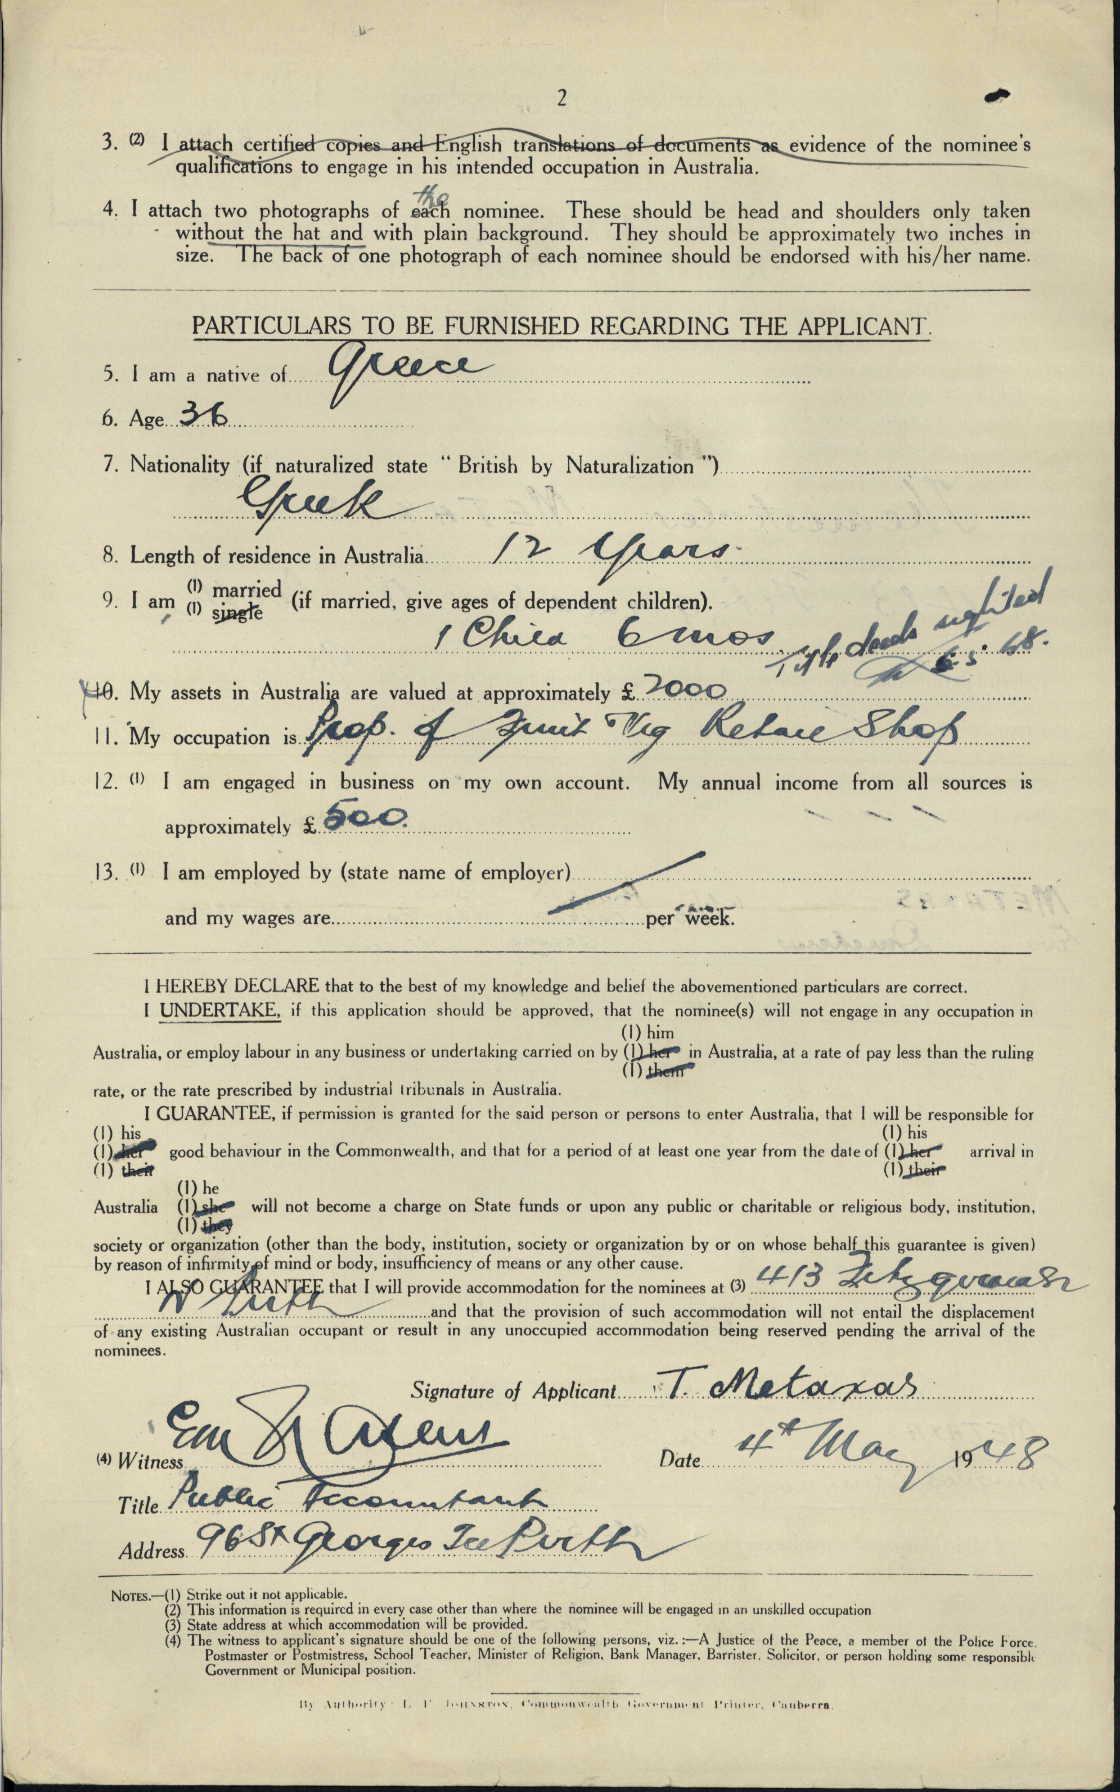 2
3. (2) I attach certified copies and English translations of documents as evidence of the nominee's
qualifications to engage in his intended occupation in Australia.
the
4. I attach two photographs of each nominee. These should be head and shoulders only taken
without the hat and with plain background. They should be approximately two inches in
size. The back of one photograph of each nominee should be endorsed with his/her name.
PARTICULARS TO BE FURNISHED REGARDING THE APPLICANT.
5. I am a native of Greece
6. Age 36
7. Nationality (if naturalized state "British by Naturalization")
Greek
8. Length of residence in Australia 12 Years.
9. I am (1) married
(1) single (if married, give ages of dependent children).
1 Child 6 mos
Title deeds sighted
6.5.48.
10. My assets in Australia are valued at approximately £ 2000
11. My occupation is Prop. of Fruit & Veg Retail Shop
12. (1) I am engaged in business on my own account. My annual income from all sources is
approximately £ 500.
13. (1) I am employed by (state name of employer)
and my wages are per week.
I HEREBY DECLARE that to the best of my knowledge and belief the abovementioned particulars are correct.
I UNDERTAKE, if this application should be approved, that the nominee(s) will not engage in any occupation in
(1) him
Australia, or employ labour in any business or undertaking carried on by (1) her in Australia, at a rate of pay less than the ruling
(1) them
rate, or the rate prescribed by industrial tribunals in Australia.
I GUARANTEE, if permission is granted for the said person or persons to enter Australia, that I will be responsible for
(1) his (1) his
(1) her good behaviour in the Commonwealth, and that for a period of at least one year from the date of (1) her arrival in
(1) their (1) their
(1) he
Australia (1) she will not become a charge on State funds or upon any public or charitable or religious body, institution,
(1) they
society or organization (other than the body, institution, society or organization by or on whose behalf this guarantee is given)
by reason of infirmity of mind or body, insufficiency of means or any other cause.
I ALSO GUARANTEE that I will provide accommodation for the nominees at (3) 413 Fitzgerald St
N Perth and that the provision of such accommodation will not entail the displacement
of any existing Australian occupant or result in any unoccupied accommodation being reserved pending the arrival of the
nominees.
Signature of Applicant T. Metaxas
(4) Witness
Date 4th May 1948
Title Public Accountant
Address 96 St Georges Tce Perth
NOTES.—(1) Strike out if not applicable.
(2) This information is required in every case other than where the nominee will be engaged in an unskilled occupation
(3) State address at which accommodation will be provided.
(4) The witness to applicant's signature should be one of the following persons, viz.:—A Justice of the Peace, a member of the Police Force,
Postmaster or Postmistress, School Teacher, Minister of Religion, Bank Manager, Barrister, Solicitor, or person holding some responsible
Government or Municipal position.
By Authority: L. F. JOHNSTON, Commonwealth Government Printer, Canberra.